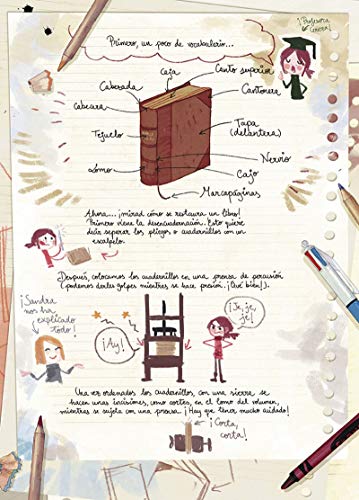 Primero, un poco de vocabulario...
¡Profesora
Caja
Canto superior
Cabezada
Cantonera
Cabecera
Tapa
(delantera)
Tejuelo
Nervio
Lomo
Cajo
Marcapáginas
Ahora... ¡mirad cómo se restaura un libro!
Primero viene la desencuadernación. Esto quiere
decir separar los pliegos o cuadernillos con un
escalpelo.
Después colocamos los cuadernillos en una prensa de percusión
(podemos darles golpes mientras se hace presión. ¡Qué bien!).
¡Sandra
nos ha
explicado
todo!
¡Ay!
¡Je, je,
je!
Una vez ordenados los cuadernillos, con una sierra se
hacen unas incisiones, como cortes, en el lomo del volumen,
mientras se sujeta con una prensa. ¡Hay que tener mucho cuidado!
¡Corta,
corta!